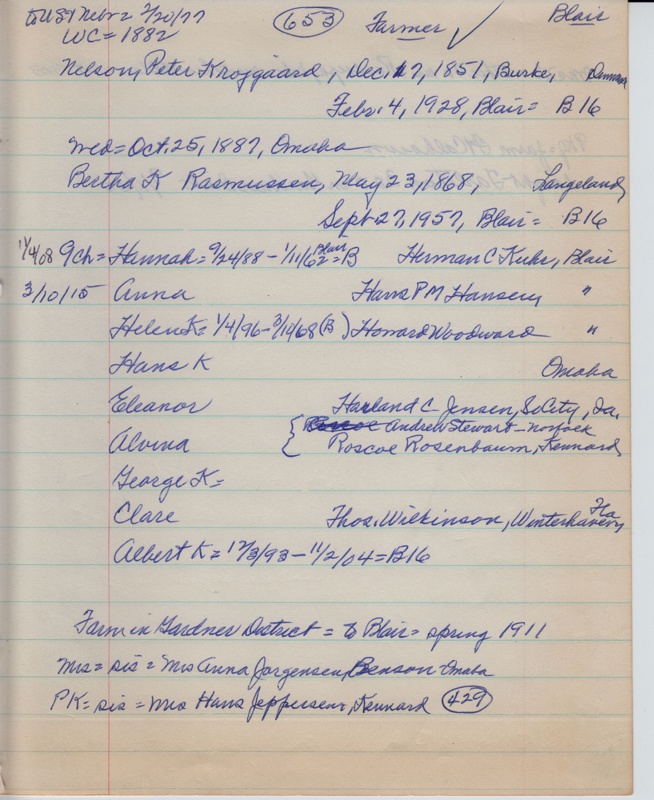 to US & Nebr = 2/20/77 653 Farmer ✓ Blair
WC = 1882
Nelson, Peter Krojgaard, Dec. 17, 1851, Burke, Denmark
Febr. 4, 1928, Blair = B16
Wed = Oct. 25, 1887, Omaha
Bertha K Rasmussen, May 23, 1868, Langeland,
Sept 27, 1957, Blair = B16
11/4/08 9ch = Hannah = 9/24/88 - 1/11/62 = Blair B Herman C Kuhr, Blair
3/10/15 Anna Hans P M Hansen, "
Helen K = 1/4/96 - 3/14/68 (B) Howard Woodward "
Hans K Omaha
Eleanor Harland C Jensen, So City, Ia.
Andrew Stewart - Norfolk
Alvina Roscoe Rosenbaum, Kennard
George K =
Clare Thos. Wilkinson, Winterhaven, Fla
Albert K = 12/3/93 - 11/2/04 = B16
Farm in Gardner District = to Blair = spring 1911
Mrs = sis = Mrs Anna Jorgensen, Benson Omaha
PK = sis = Mrs Hans Jeppesen, Kennard 429